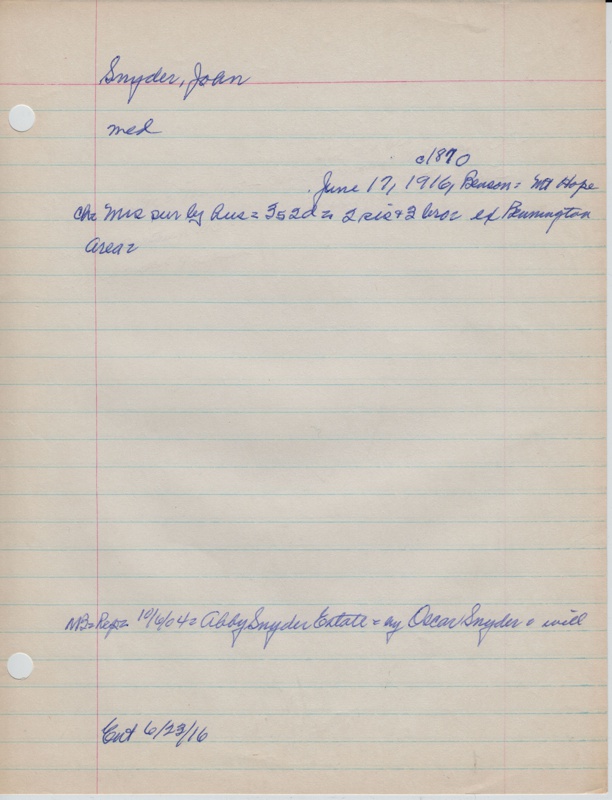 Snyder, Joan
med
c1870
June 17, 1916, Benson = Mt Hope
ch = Mrs sur by hus = 3s 2d = 2 sis + 3 bros = of Bennington
Area =
NB = Rep = 10/6/04 = Abby Snyder Estate = by Oscar Snyder = will
Ent 6/23/16